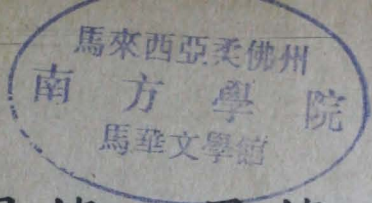 馬來西亞柔佛州
南方學院
馬華文學館